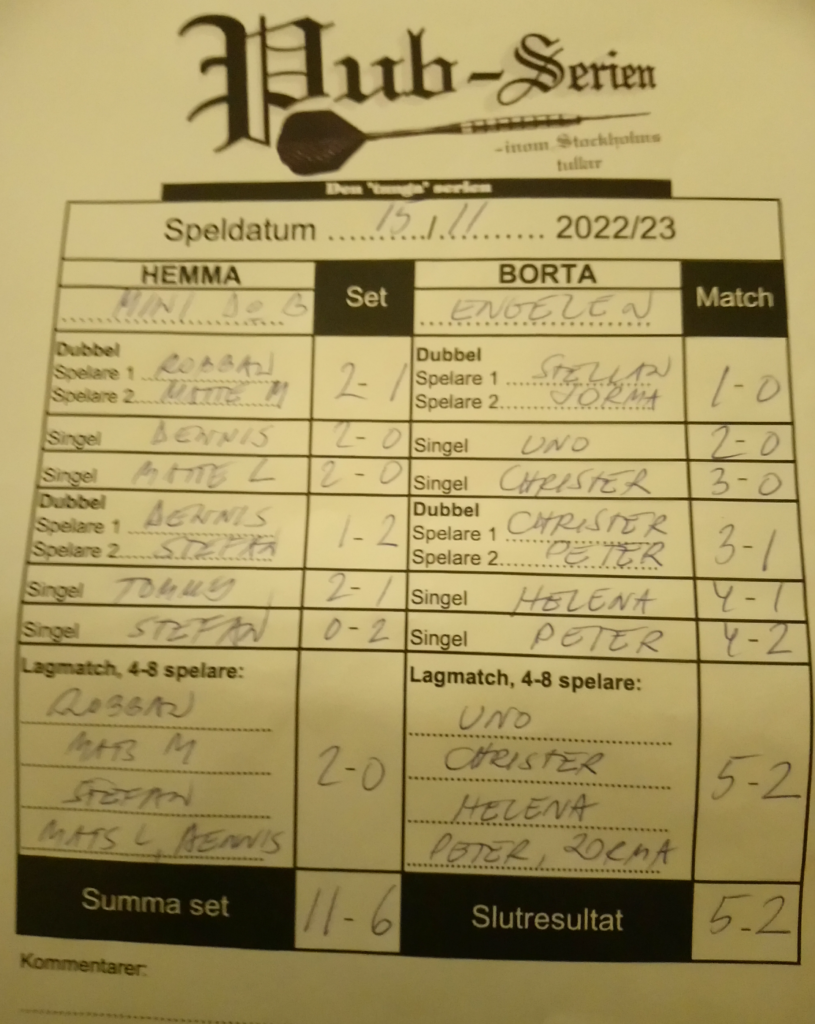 Pub-Serien
-inom Stockholms
tullar
Den "tunga" serien
Speldatum ......15../.11.......... 2022/23
HEMMA Set BORTA Match
MINI DO B ENGELEN
Dubbel 2-1 Dubbel 1-0
Spelare 1 ROBBAN Spelare 1 STELLAN
Spelare 2 MATTE M Spelare 2 JORMA
Singel DENNIS 2-0 Singel UNO 2-0
Singel MATTE L 2-0 Singel CHRISTER 3-0
Dubbel 1-2 Dubbel 3-1
Spelare 1 DENNIS Spelare 1 CHRISTER
Spelare 2 STEFAN Spelare 2 PETER
Singel TOMMY 2-1 Singel HELENA 4-1
Singel STEFAN 0-2 Singel PETER 4-2
Lagmatch, 4-8 spelare: Lagmatch, 4-8 spelare:
ROBBAN UNO
MATS M CHRISTER
2-0 5-2
STEFAN HELENA
MATS L, DENNIS PETER, JORMA
Summa set 11-6 Slutresultat 5-2
Kommentarer: